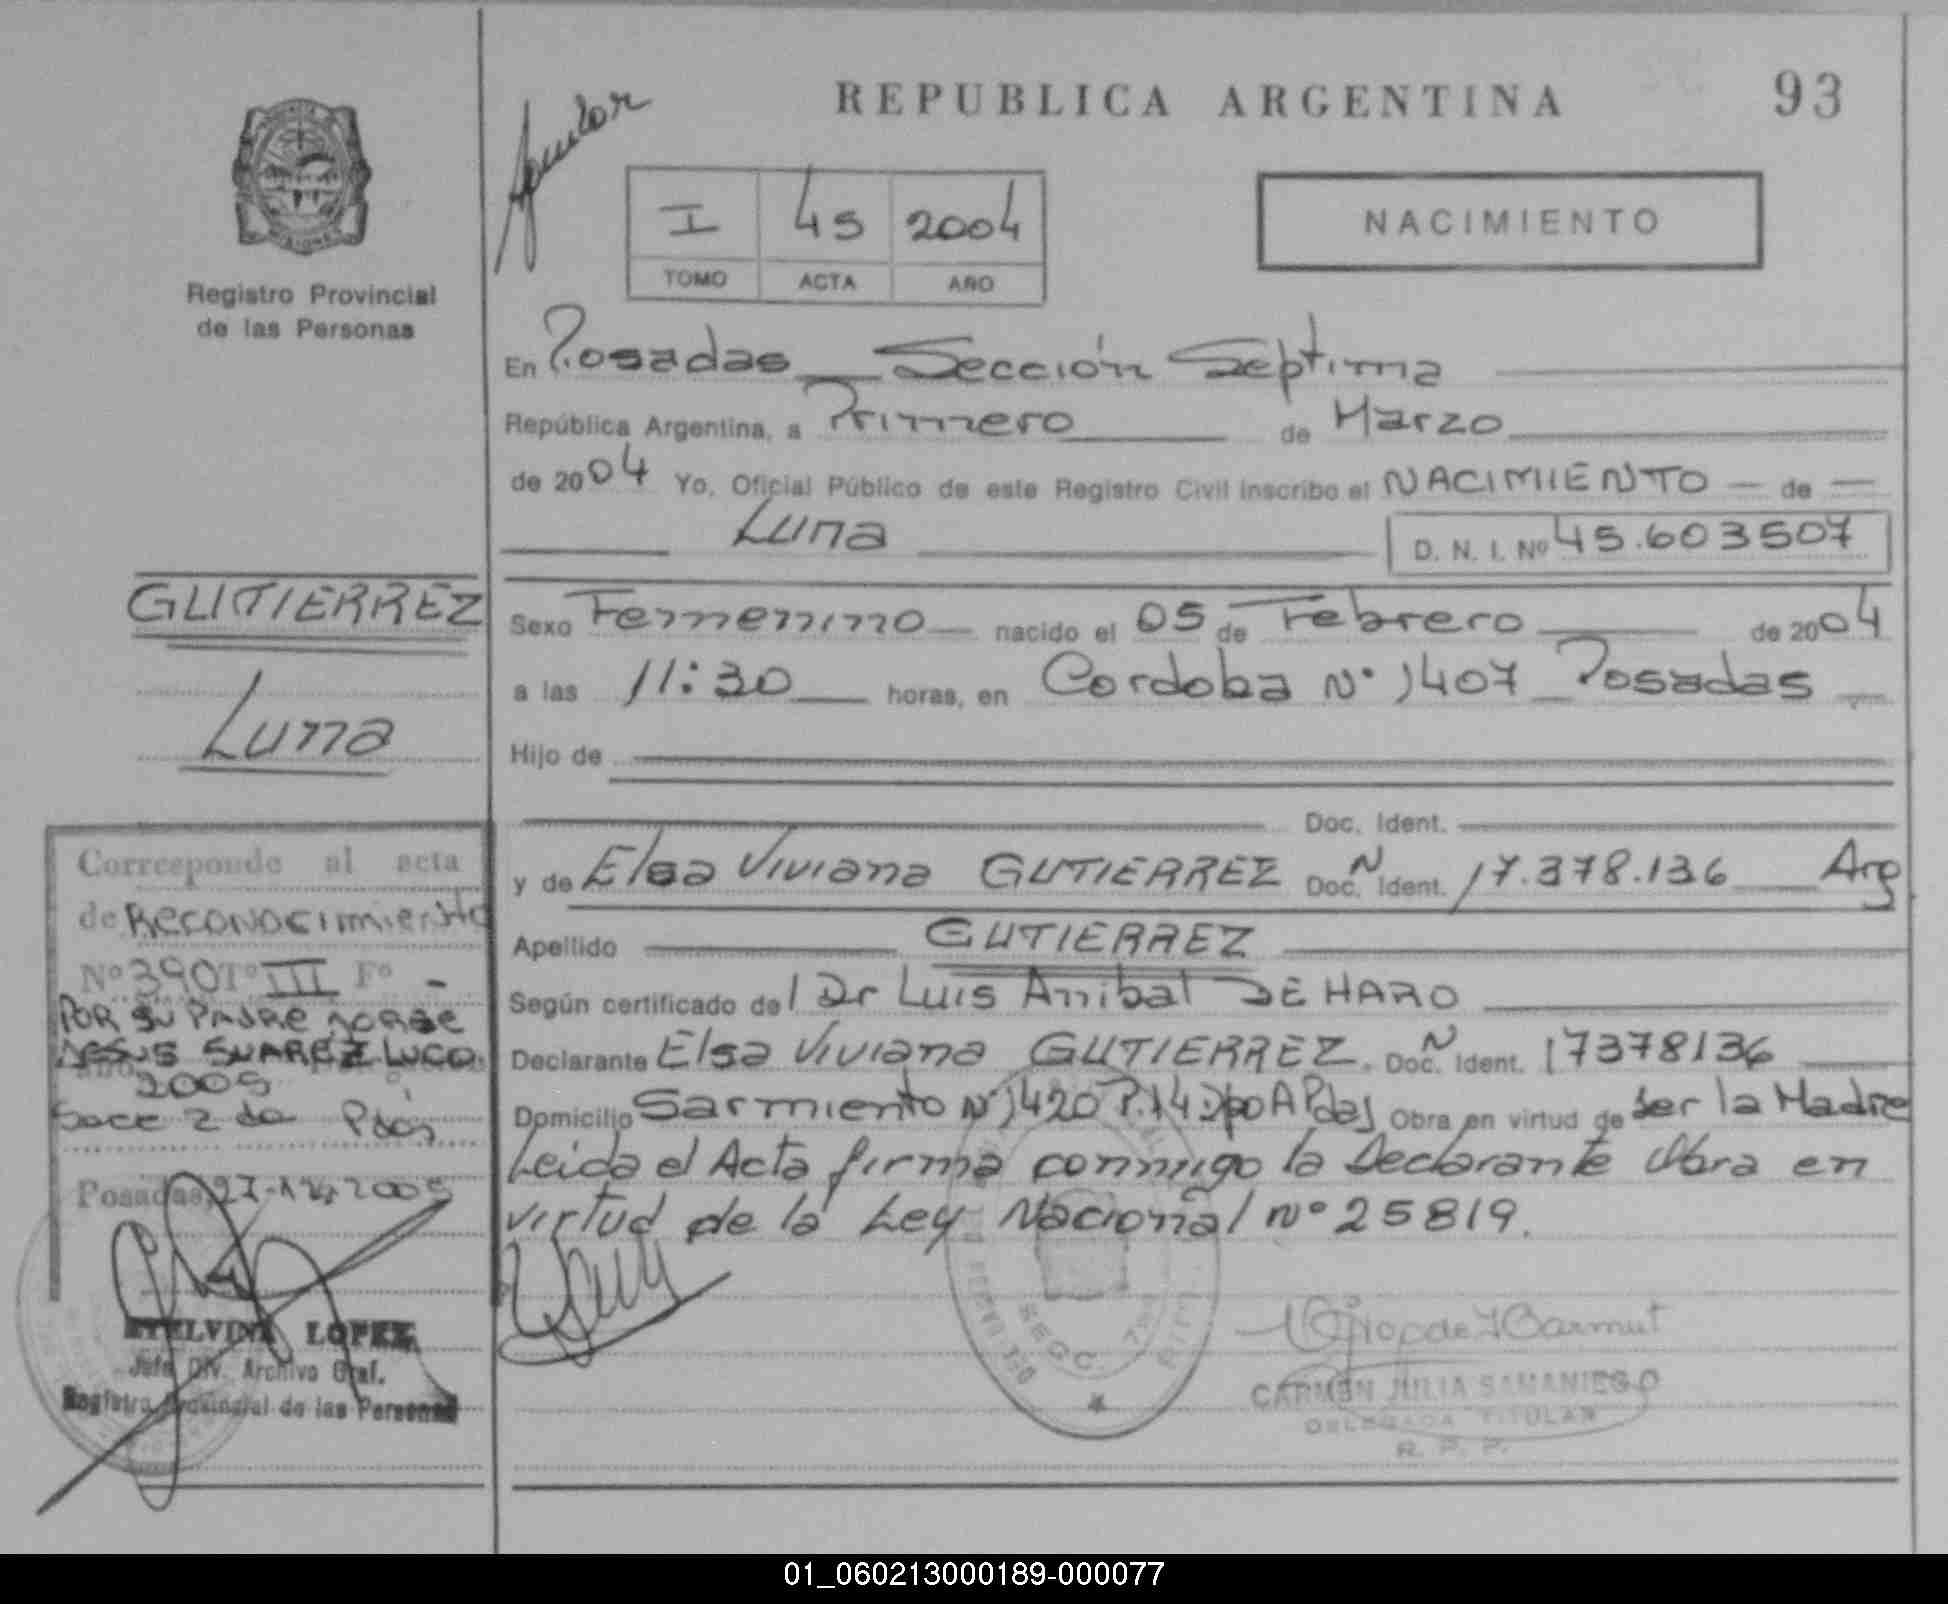 REPUBLICA ARGENTINA
93
I 45 2004
TOMO ACTA AÑO
NACIMIENTO
Registro Provincial
de las Personas
En Posadas Sección Septima
República Argentina, a Primero de Marzo
de 2004 Yo, Oficial Público de este Registro Civil inscribo el NACIMIENTO de
Luna D. N. I. Nº 45.603507
GUTIERREZ
Luna
Sexo Femenino nacido el 05 de Febrero de 2004
a las 11:30 horas, en Cordoba Nº 1407 Posadas
Hijo de
Doc. Ident.
y de Elsa Viviana GUTIERREZ Doc. N Ident. 17.378.136 Arg
Apellido GUTIERREZ
Según certificado del Dr Luis Anibal DE HARO
Declarante Elsa Viviana GUTIERREZ. Doc. N Ident. 17378136
Domicilio Sarmiento Nº 1420 P.14 Dpo A Pdas Obra en virtud de ser la Madre
Leida el Acta firma conmigo la Declarante Obra en
virtud de la Ley Nacional nº 25819.
Corresponde al acta
de Reconocimiento
Nº 390 Tº III Fº -
POR SU PADRE JORGE
JESUS SUAREZ LUGO.
año 2005
Secc 2 da Pdas
Posadas, 27-12-2005
ETELVINA LOPEZ
Jefe Div. Archivo Graf.
Registro Provincial de las Personas
CARMEN JULIA SAMANIEGO
DELEGADA TITULAR
R. P. P.
01_060213000189-000077